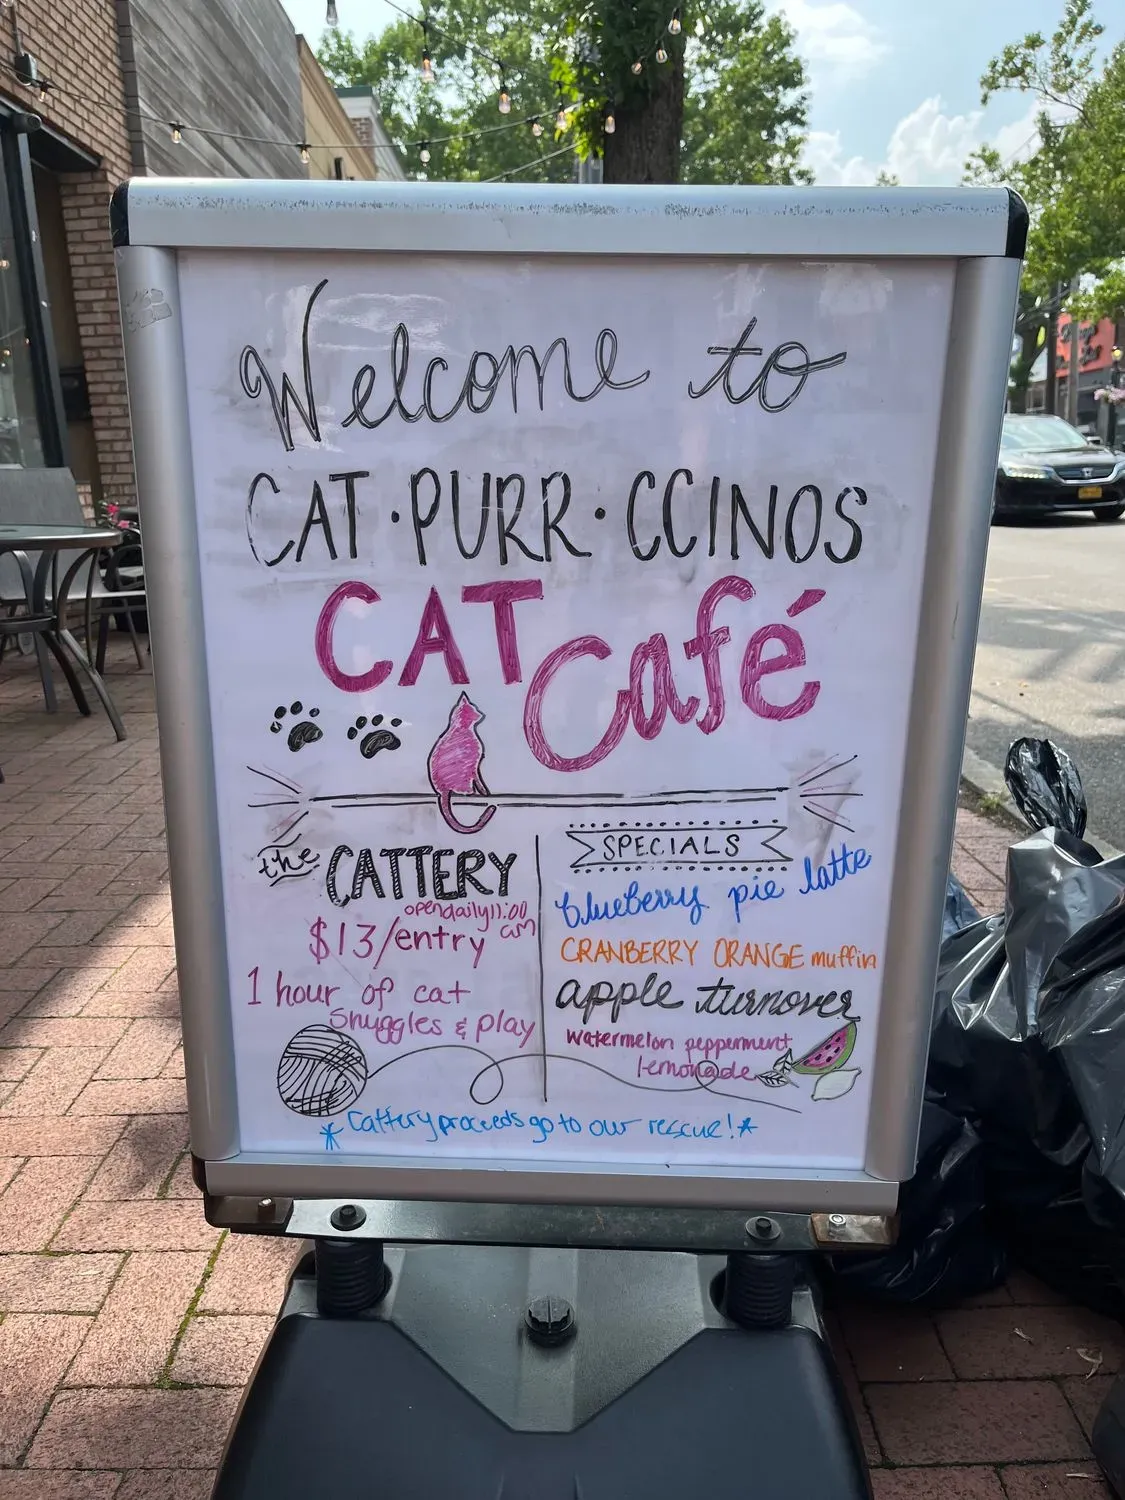 Welcome to
CAT·PURR·CCINOS
CAT Café
the CATTERY
open daily 11:00 am
$13/entry
1 hour of cat
snuggles & play
SPECIALS
blueberry pie latte
CRANBERRY ORANGE muffin
apple turnover
watermelon peppermint
lemonade
*Cattery proceeds go to our rescue!*